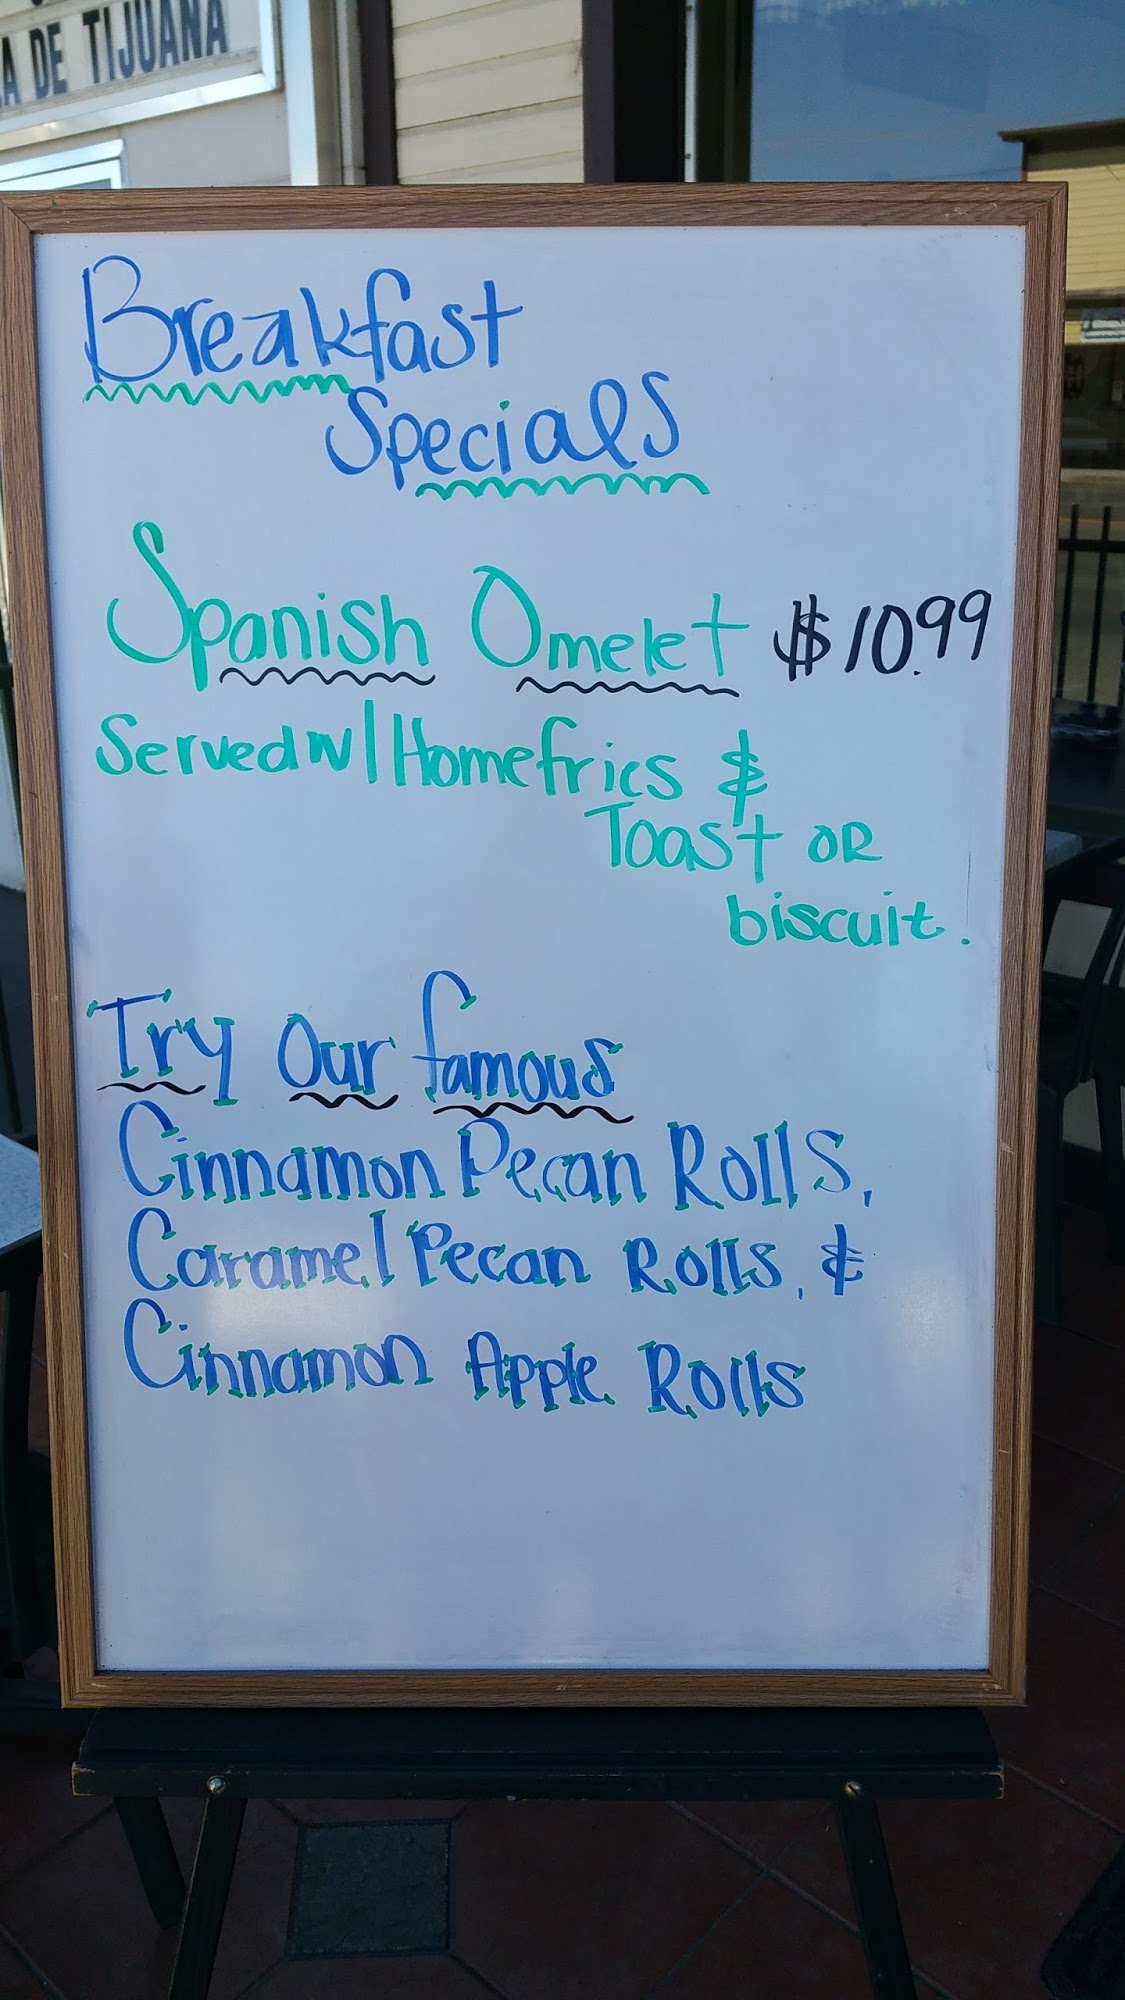 A DE TIJUANA
Breakfast
Specials
Spanish Omelet $10.99
Served w/ Homefries &
Toast OR
biscuit.
Try Our famous
Cinnamon Pecan Rolls,
Caramel Pecan Rolls, &
Cinnamon Apple Rolls